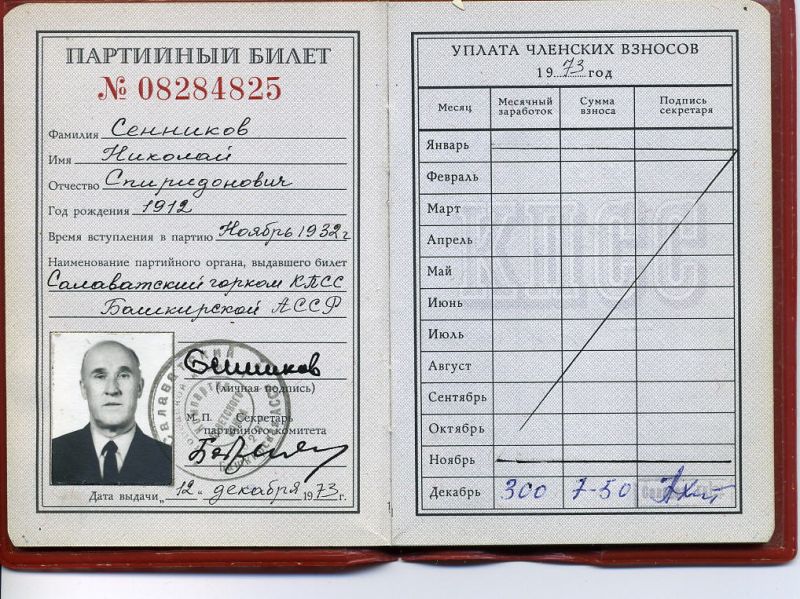 ПАРТИЙНЫЙ БИЛЕТ
№ 08284825
Фамилия Сенников
Имя Николай
Отчество Спиридонович
Год рождения 1912
Время вступления в партию Ноябрь 1932 г.
Наименование партийного органа, выдавшего билет
Салаватский горком КПСС
Башкирской АССР
Сенников
(личная подпись)
М.П. Секретарь
партийного комитета
Дата выдачи „12“ декабря 1973 г.
УПЛАТА ЧЛЕНСКИХ ВЗНОСОВ
1973 год
Месяц Месячный заработок Сумма взноса Подпись секретаря
Январь
Февраль
Март
Апрель
Май
Июнь
Июль
Август
Сентябрь
Октябрь
Ноябрь
Декабрь 300 7-50
КПСС